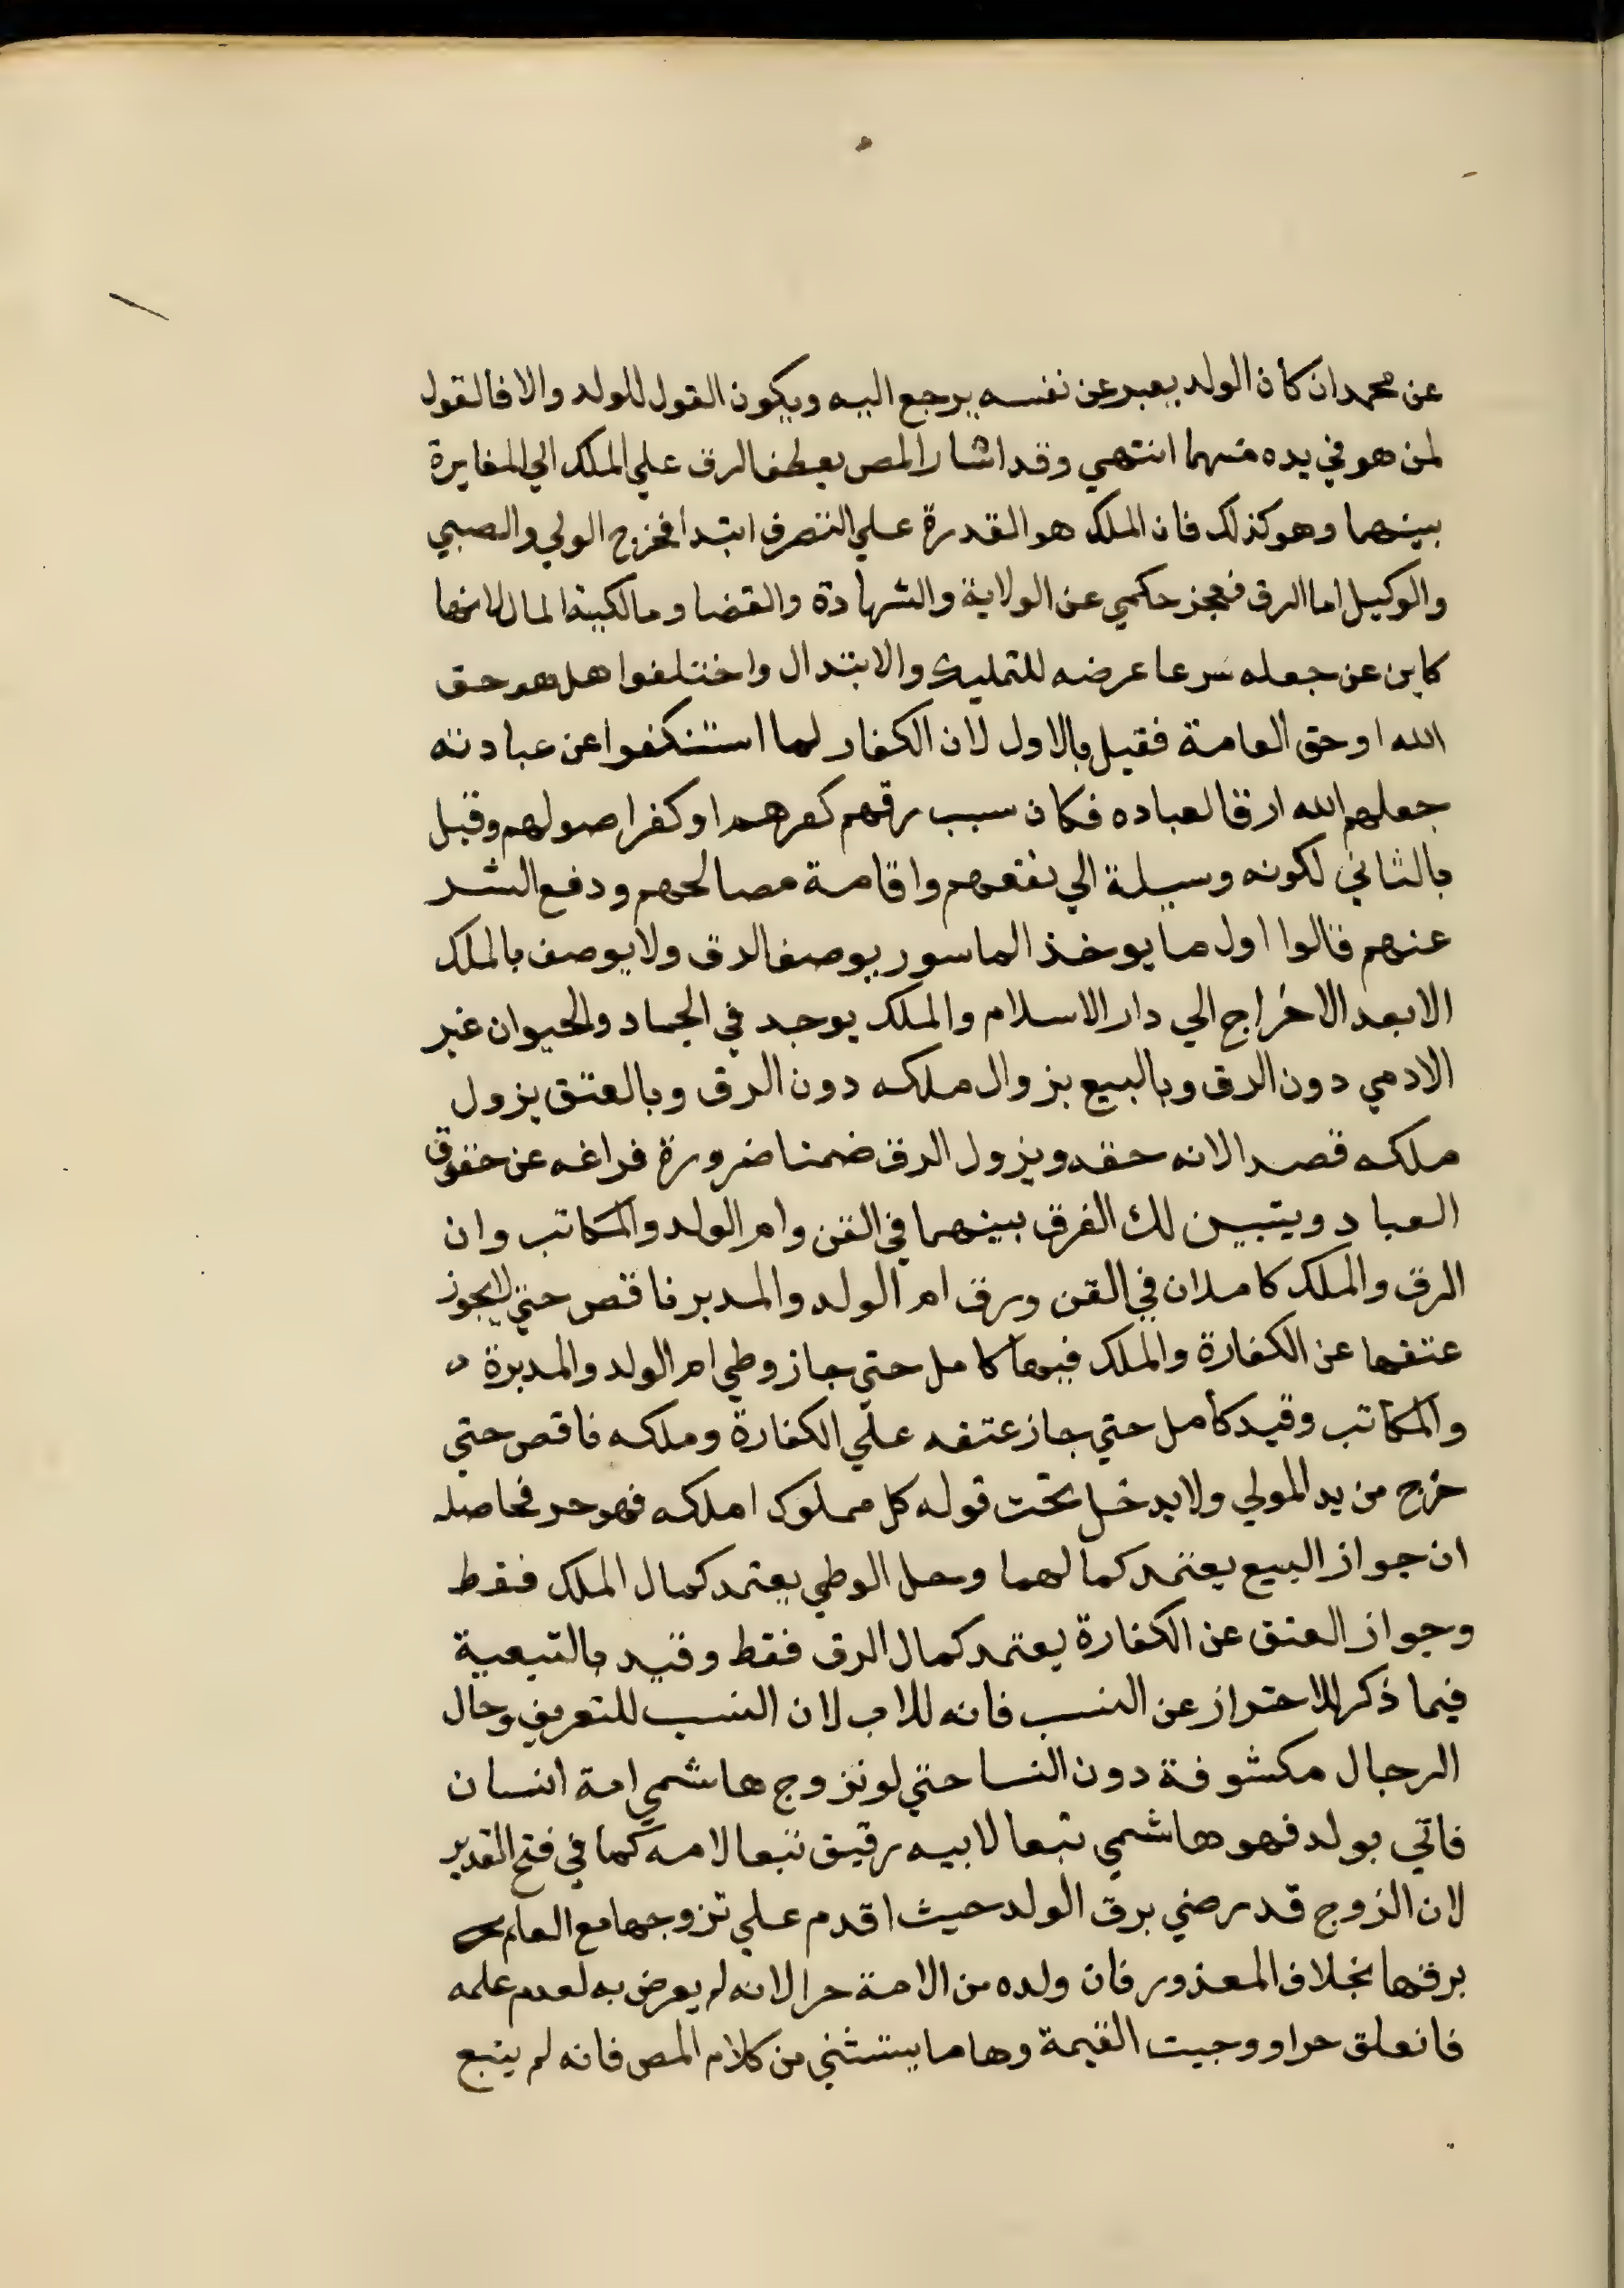 عن محمد ان كان الولد يعبر عن نفسه يرجع اليه ويكون القول للولد والا فالقول
لمن هو في يده منهما انتهي وقد اشار المص بعطف الرق علي الملك الي المغايرة
بينهما وهو كذلك فان الملك هو القدرة علي التصرف ابتدا فخرج الولي والصبي
والوكيل اما الرق فعجز حكمي عن الولاية والشهادة والقضا ومالكية المال
كاين عن جعله شرعا عرضه للتمليك والابتدال واختلفوا هل هو حق
الله او حق العامة فقيل بالاول لان الكفار لما استنكفوا عن عبادته
جعلهم الله ارقا لعباده فكان سبب رقهم كفرهم او كفر اصولهم وقيل
بالثاني لكونه وسيلة الي نفعهم واقامة مصالحهم ودفع الشر
عنهم قالوا اول ما يوخذ الماسور يوصف الرق ولا يوصف بالملك
الا بعد الاخراج الي دار الاسلام والملك يوجد في الجماد والحيوان غير
الادمي دون الرق وبالبيع بزوال ملكه دون الرق وبالعتق يزول
ملكه قصدا لانه حقه ويزول الرق ضمنا ضرورة فراغه عن حقوق
العباد ويتبين لك الفرق بينهما في القن وام الولد والمكاتب وان
الرق والملك كاملان في القن ورق ام الولد والمدبر ناقص حتي لا يجوز
عتقها عن الكفارة والملك فيها كامل حتي جاز وطي ام الولد والمدبرة
والمكاتب وقيد كامل حتي جاز عتقه علي الكفارة وملكه ناقص حتي
خرج من يد المولي ولا يدخل تحت قوله كل مملوك املكه فهو حر فحاصله
ان جواز البيع يعتمد كمالهما وحل الوطي يعتمد كمال الملك فقط
وجواز العتق عن الكفارة يعتمد كمال الرق فقط وقيد بالتبعية
فيما ذكر للاحتراز عن النسب فانه للاب لان النسب للتعريف وحال
الرجال مكشوفة دون النسا حتي لو تزوج هاشمي امة انسان
فاتي بولد فهو هاشمي تبعا لابيه رقيق تبعا لامه كما في فتح القدير
لان الزوج قد رضي برق الولد حيث اقدم علي تزوجها مع العلم
برقها بخلاف المعذور فان ولده من الامة حرا لانه لم يعرض به لعدم علمه
فانعلق حرا ووجبت القيمة وها ما يستثني من كلام المص فانه لم يتبع